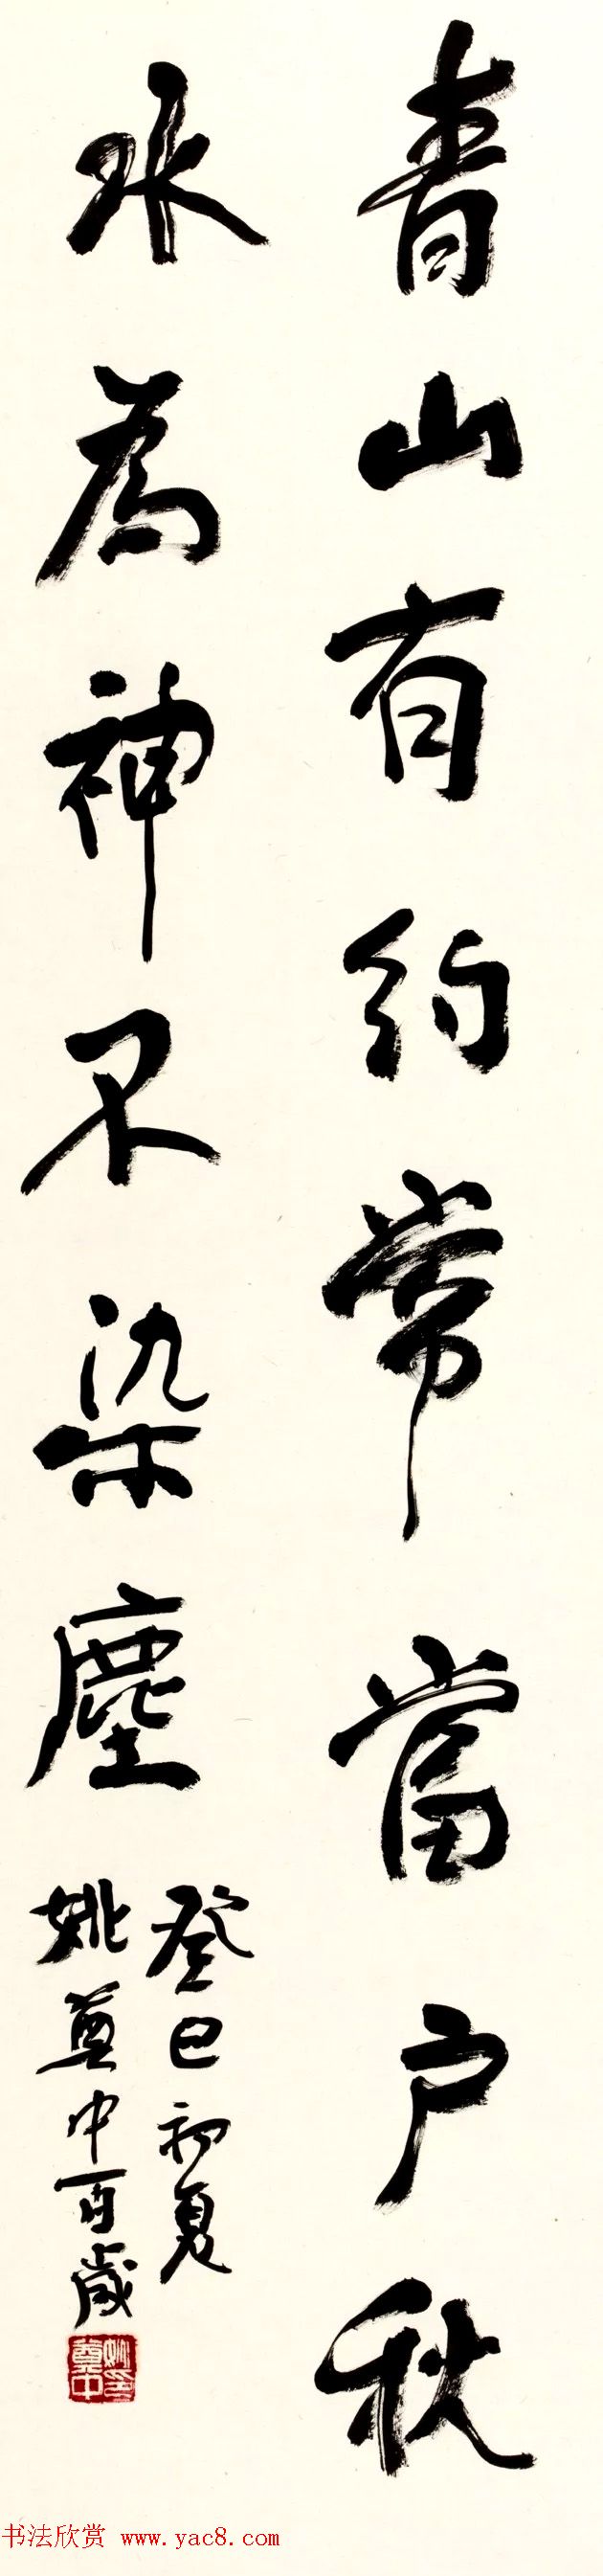 青山有約常當户秋
水為神不染塵
癸巳初夏
姚奠中百歲
姚奠中印
书法欣赏 www.yac8.com